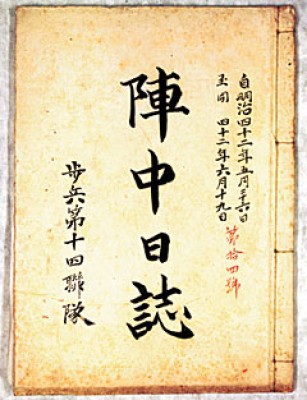 自明治四十二年五月二十六日
至同 四十二年六月十九日
第拾四號
陣中日誌
歩兵第十四聯隊